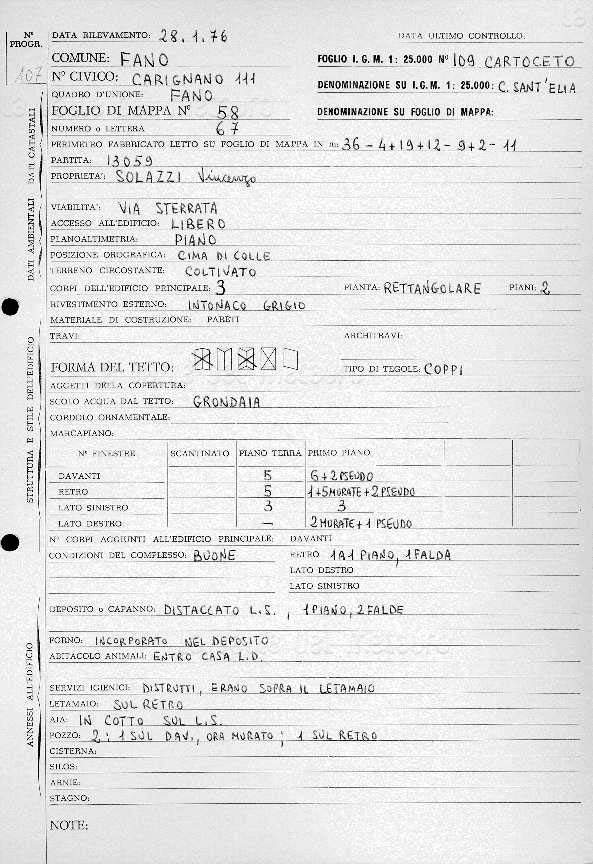 Nº PROGR. 107
DATA RILEVAMENTO: 28.1.76 DATA ULTIMO CONTROLLO:
COMUNE: FANO FOGLIO I.G.M. 1: 25.000 Nº 109 CARTOCETO
Nº CIVICO: CARIGNANO 111 DENOMINAZIONE SU I.G.M. 1: 25.000: C. SANT'ELIA
QUADRO D'UNIONE: FANO
FOGLIO DI MAPPA Nº 58 DENOMINAZIONE SU FOGLIO DI MAPPA:
NUMERO o LETTERA 67
PERIMETRO FABBRICATO LETTO SU FOGLIO DI MAPPA IN m: 36-4+19+12-9+2-11
PARTITA: 13059
PROPRIETA': SOLAZZI Vincenzo
DATI CATASTALI
VIABILITA': VIA STERRATA
ACCESSO ALL'EDIFICIO: LIBERO
PLANOALTIMETRIA: PIANO
POSIZIONE OROGRAFICA: CIMA DI COLLE
TERRENO CIRCOSTANTE: COLTIVATO
DATI AMBIENTALI
CORPI DELL'EDIFICIO PRINCIPALE: 3 PIANTA: RETTANGOLARE PIANI: 2
RIVESTIMENTO ESTERNO: INTONACO GRIGIO
MATERIALE DI COSTRUZIONE: PARETI
TRAVI: ARCHITRAVI:
FORMA DEL TETTO: TIPO DI TEGOLE: COPPI
AGGETTI DELLA COPERTURA:
SCOLO ACQUA DAL TETTO: GRONDAIA
CORDOLO ORNAMENTALE:
MARCAPIANO:
Nº FINESTRE SCANTINATO PIANO TERRA PRIMO PIANO
DAVANTI 5 6+2 PSEUDO
RETRO 5 1+5 MURATE+2 PSEUDO
LATO SINISTRO 3 3
LATO DESTRO - 2 MURATE+1 PSEUDO
STRUTTURA E STILE DELL'EDIFICIO
Nº CORPI AGGIUNTI ALL'EDIFICIO PRINCIPALE: DAVANTI
CONDIZIONI DEL COMPLESSO: BUONE RETRO 1 A 1 PIANO, 1 FALDA
LATO DESTRO
LATO SINISTRO
DEPOSITO o CAPANNO: DISTACCATO L.S., 1 PIANO, 2 FALDE
FORNO: INCORPORATO NEL DEPOSITO
ABITACOLO ANIMALI: ENTRO CASA L.D.
SERVIZI IGIENICI: DISTRUTTI, ERANO SOPRA IL LETAMAIO
LETAMAIO: SUL RETRO
AIA: IN COTTO SUL L.S.
POZZO: 2: 1 SUL DAV., ORA MURATO; 1 SUL RETRO
CISTERNA:
SILOS:
ARNIE:
STAGNO:
ANNESSI ALL'EDIFICIO
NOTE: